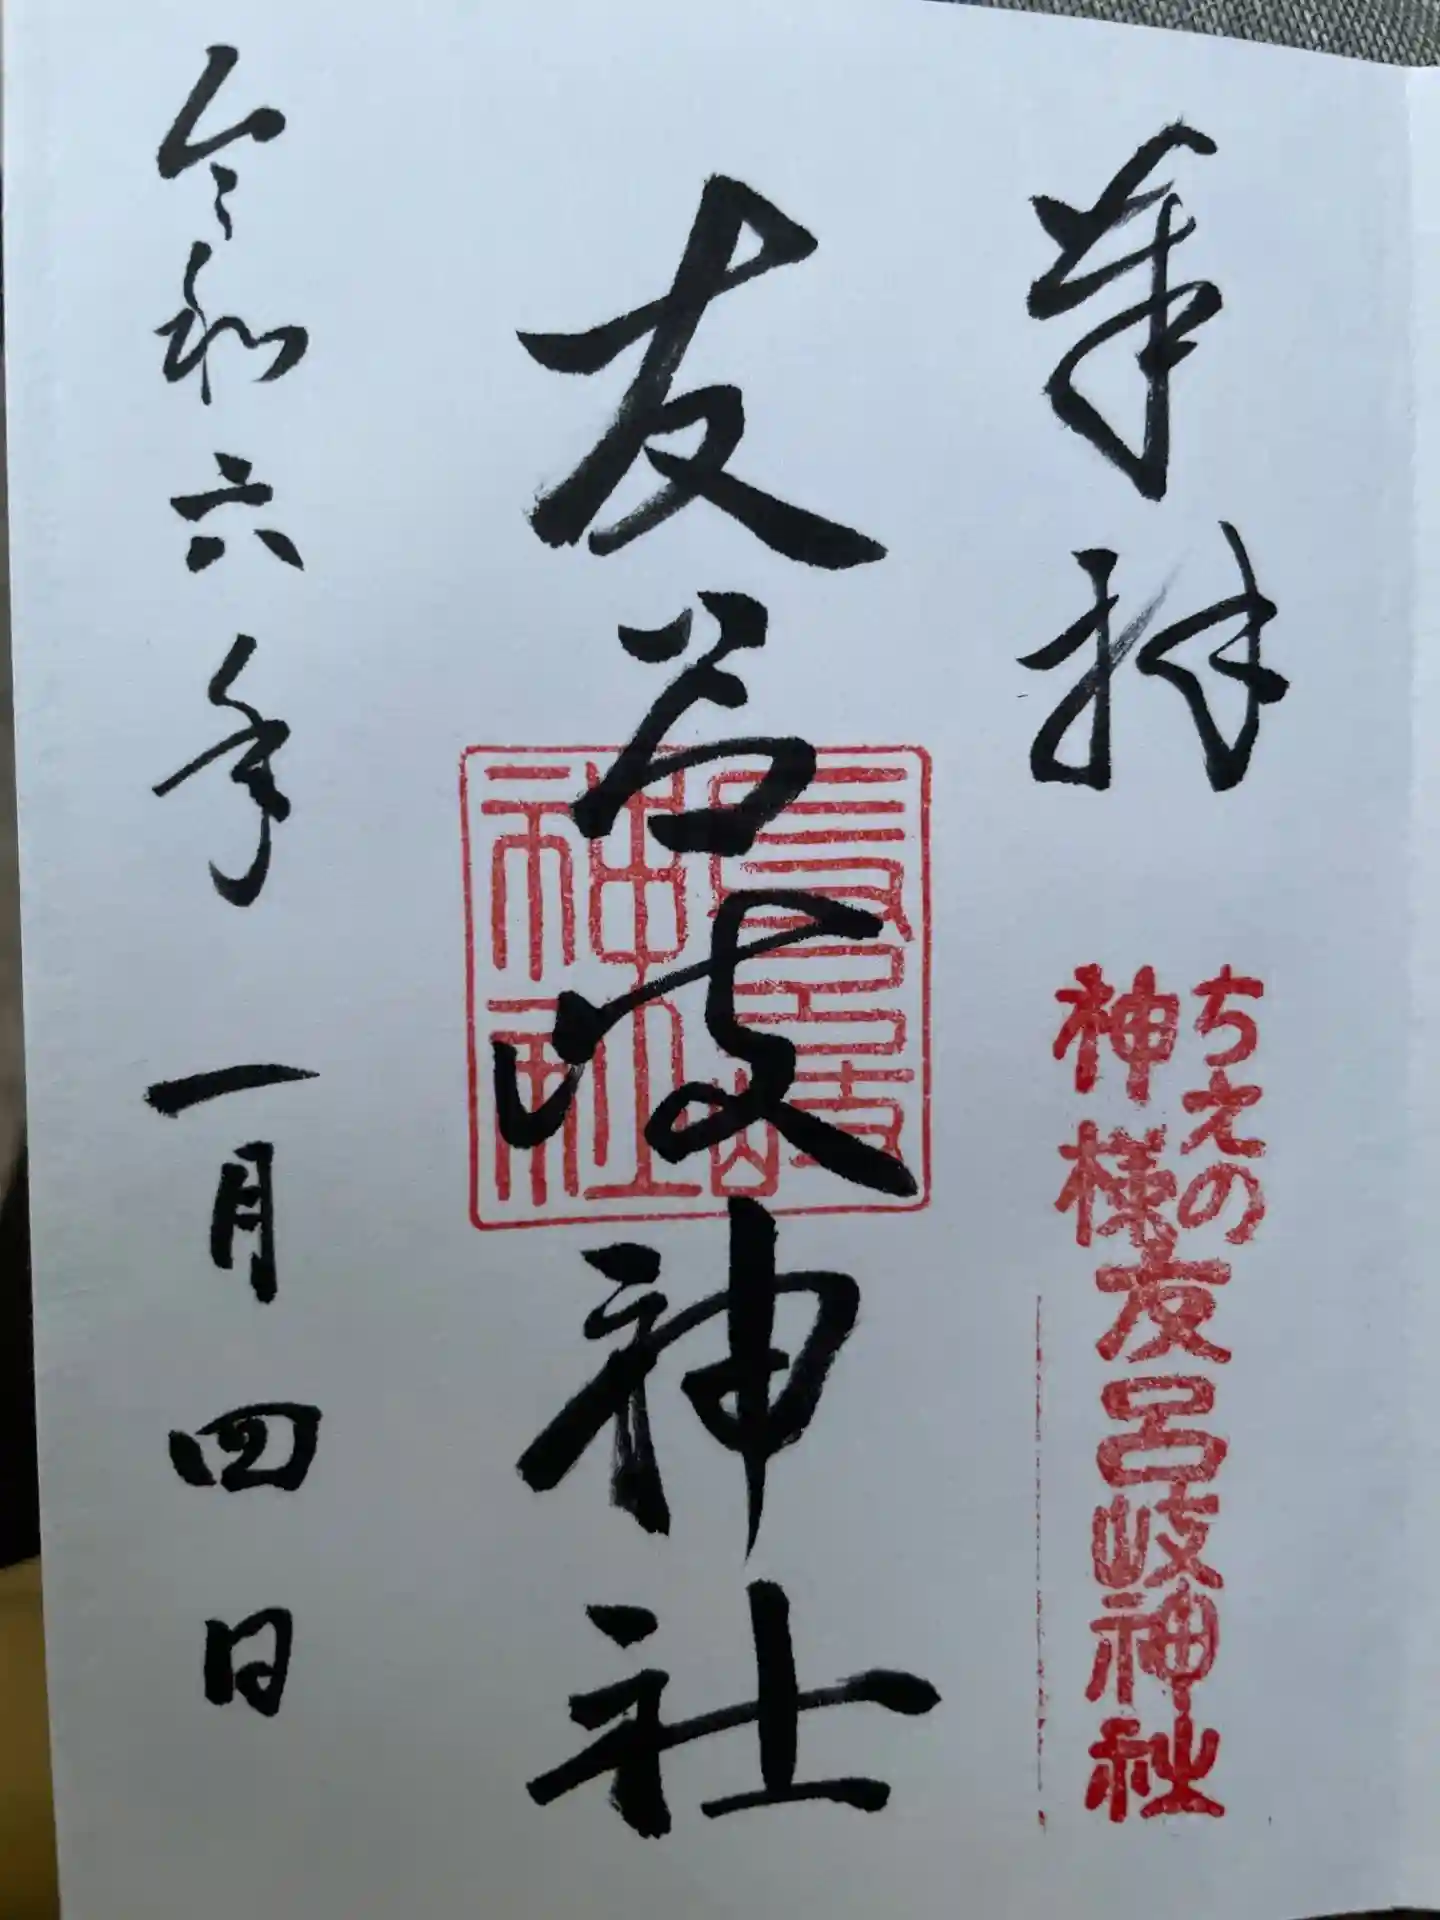 奉拝
ちえの
神様
友呂岐神社
友呂岐神社
友呂岐
神社
令和六年 一月四日